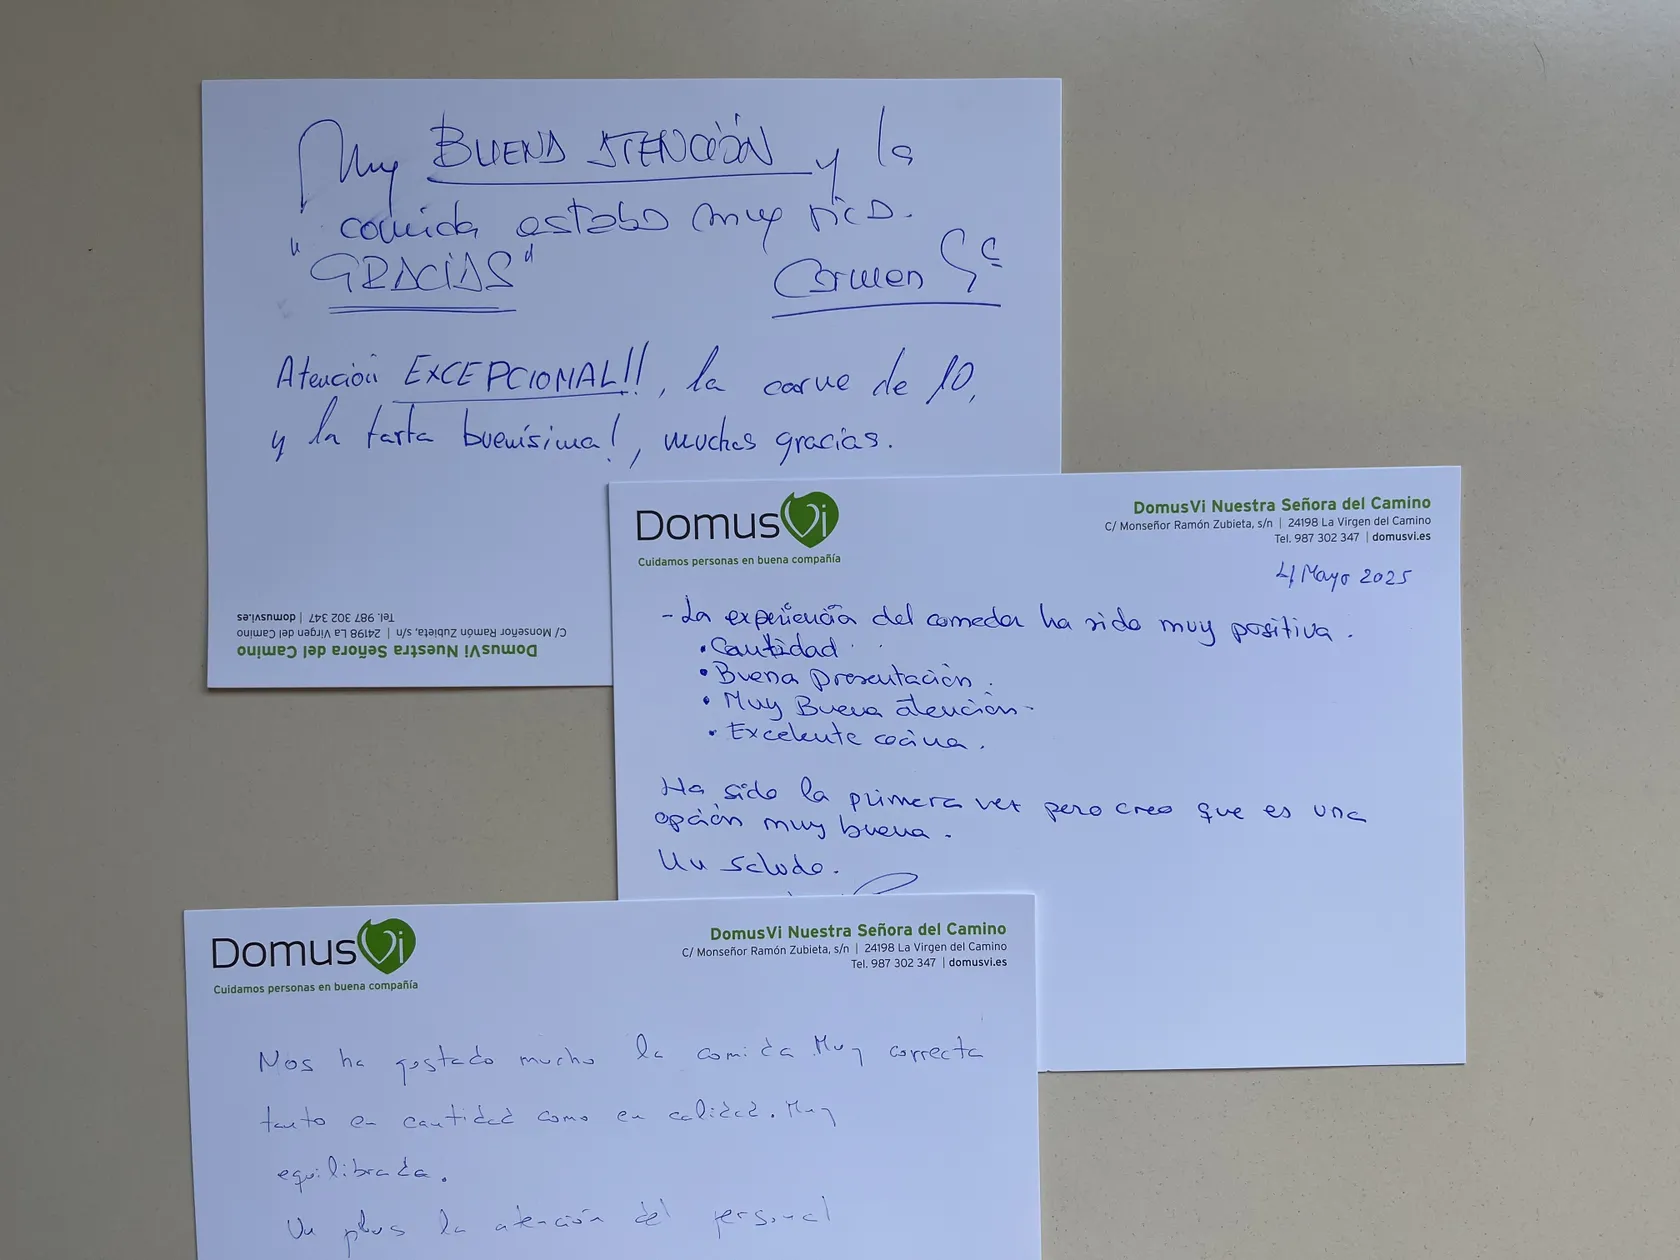 Muy BUENA ATENCIÓN y la
comida estaba muy rica.
"GRACIAS"
Carmen Gª
Atención EXCEPCIONAL!!, la carne de 10,
y la tarta buenísima!, muchas gracias.
DomusVi Nuestra Señora del Camino
C/ Monseñor Ramón Zubieta, s/n | 24198 La Virgen del Camino
Tel. 987 302 347 | domusvi.es
DomusVi
Cuidamos personas en buena compañía
DomusVi Nuestra Señora del Camino
C/ Monseñor Ramón Zubieta, s/n | 24198 La Virgen del Camino
Tel. 987 302 347 | domusvi.es
4 Mayo 2025
- La experiencia del comedor ha sido muy positiva.
• Cantidad
• Buena presentación.
• Muy Buena atención.
• Excelente cocina.
Ha sido la primera vez pero creo que es una
opción muy buena.
Un saludo.
DomusVi
Cuidamos personas en buena compañía
DomusVi Nuestra Señora del Camino
C/ Monseñor Ramón Zubieta, s/n | 24198 La Virgen del Camino
Tel. 987 302 347 | domusvi.es
Nos ha gustado mucho la comida Muy correcta
tanto en cantidad como en calidad. Muy
equilibrada.
Un plus la atención del personal